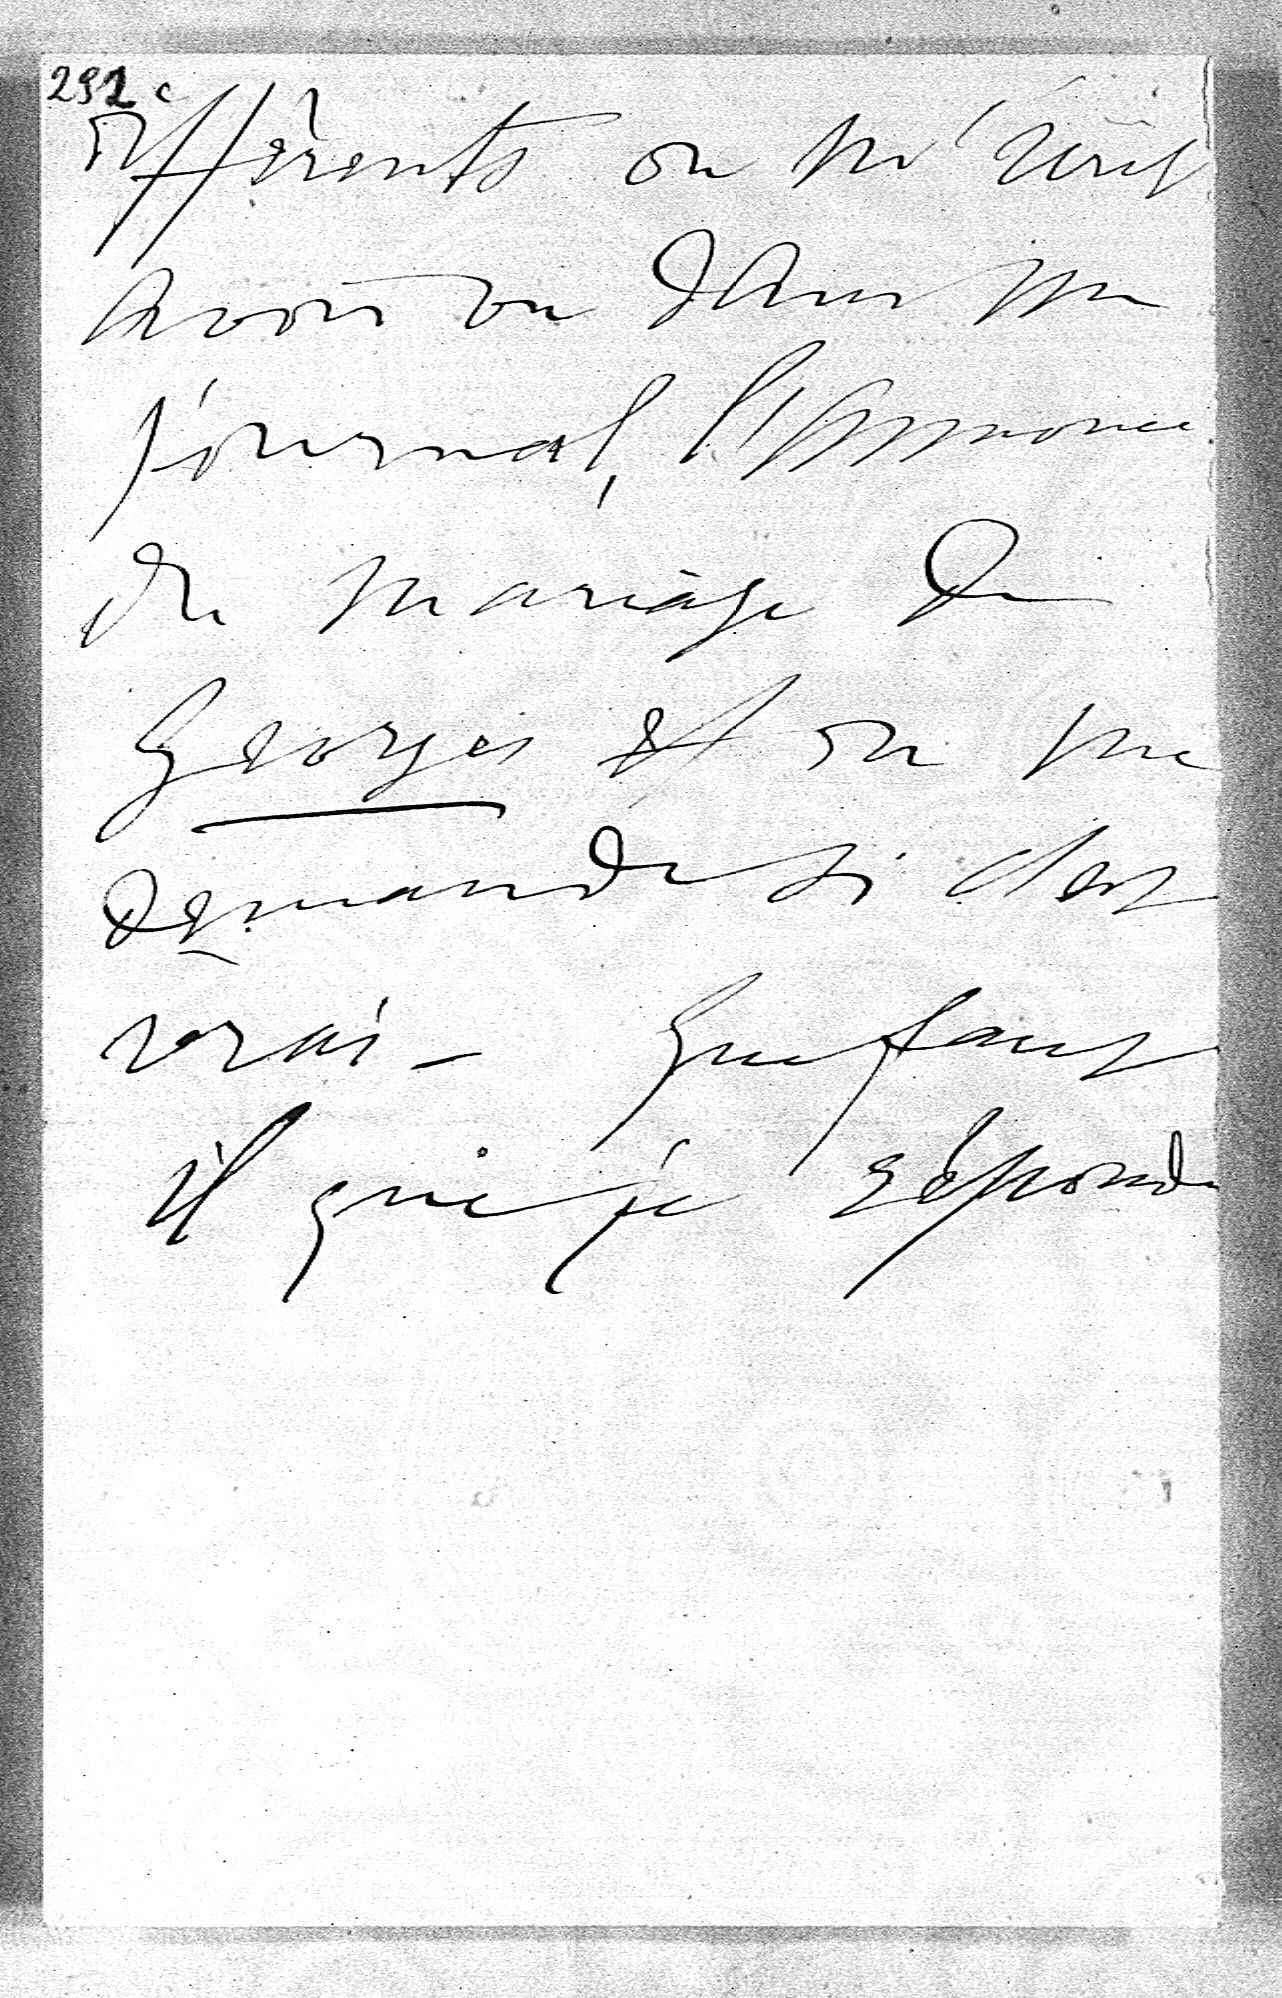 292 c
différents on m'écrit
avoir vu dans un
journal, l'annonce
du mariage de
Georges et on me
demande si c'est
vrai - Que faut
il que je réponde